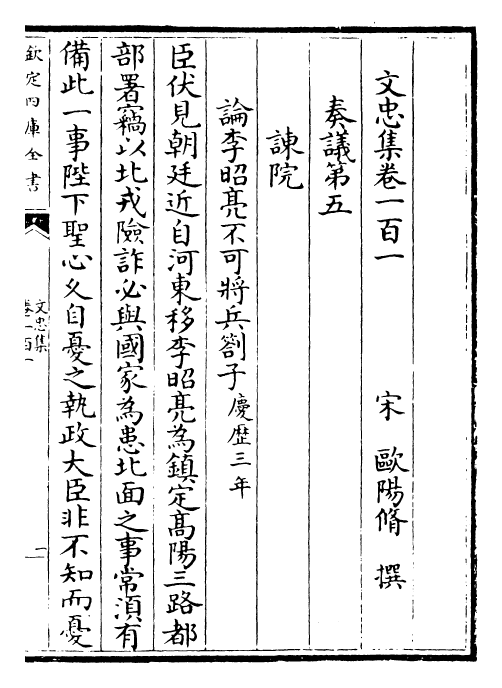 文忠集卷一百一
宋 歐陽脩 撰
奏議第五
諫院
論李昭亮不可將兵劄子慶歴三年
臣伏見朝廷近自河東移李昭亮為鎮定髙陽三路都
部署竊以北戎險詐必與國家為患北面之事常湏有
備此一事陛下聖心久自憂之執政大臣非不知而憂
欽定四庫全書
文忠集
卷一百一
一